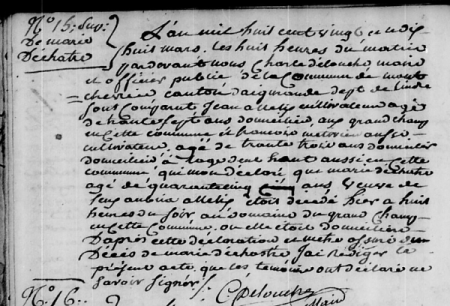 N.º 15. 
De marie
Dechatre
L'an mil huit cent vingt le dix
huit mars, les huit heures du matin
pardevant nous Charle delouche maire
et officier public de la Commune de mont
chevrier canton daigurande dept de lindre
sont comparut Jean alletis cultivateur agé
de trante sept ans domicilié aux grand champ
en Cette commune et francois metenier aussi
cultivateur, agé de trante trois ans domicilié
domicilié à haut aussi en Cette
commune, qui mon déclaré que marie dechatre
agé de quarante cinq ans, veuve de
feu alletis étoit décédé hier a huit
heures du soir au domaine du grand champ
en Cette Commune, ou elle étoit domiciliée
D'après cette déclaration et m'etre assuré du
Décès de marie dechatre, j'ai rédiger le
présent acte, que les temoins ont déclaré ne
savoir signer
C. Delouche
Maire
N.º 16.